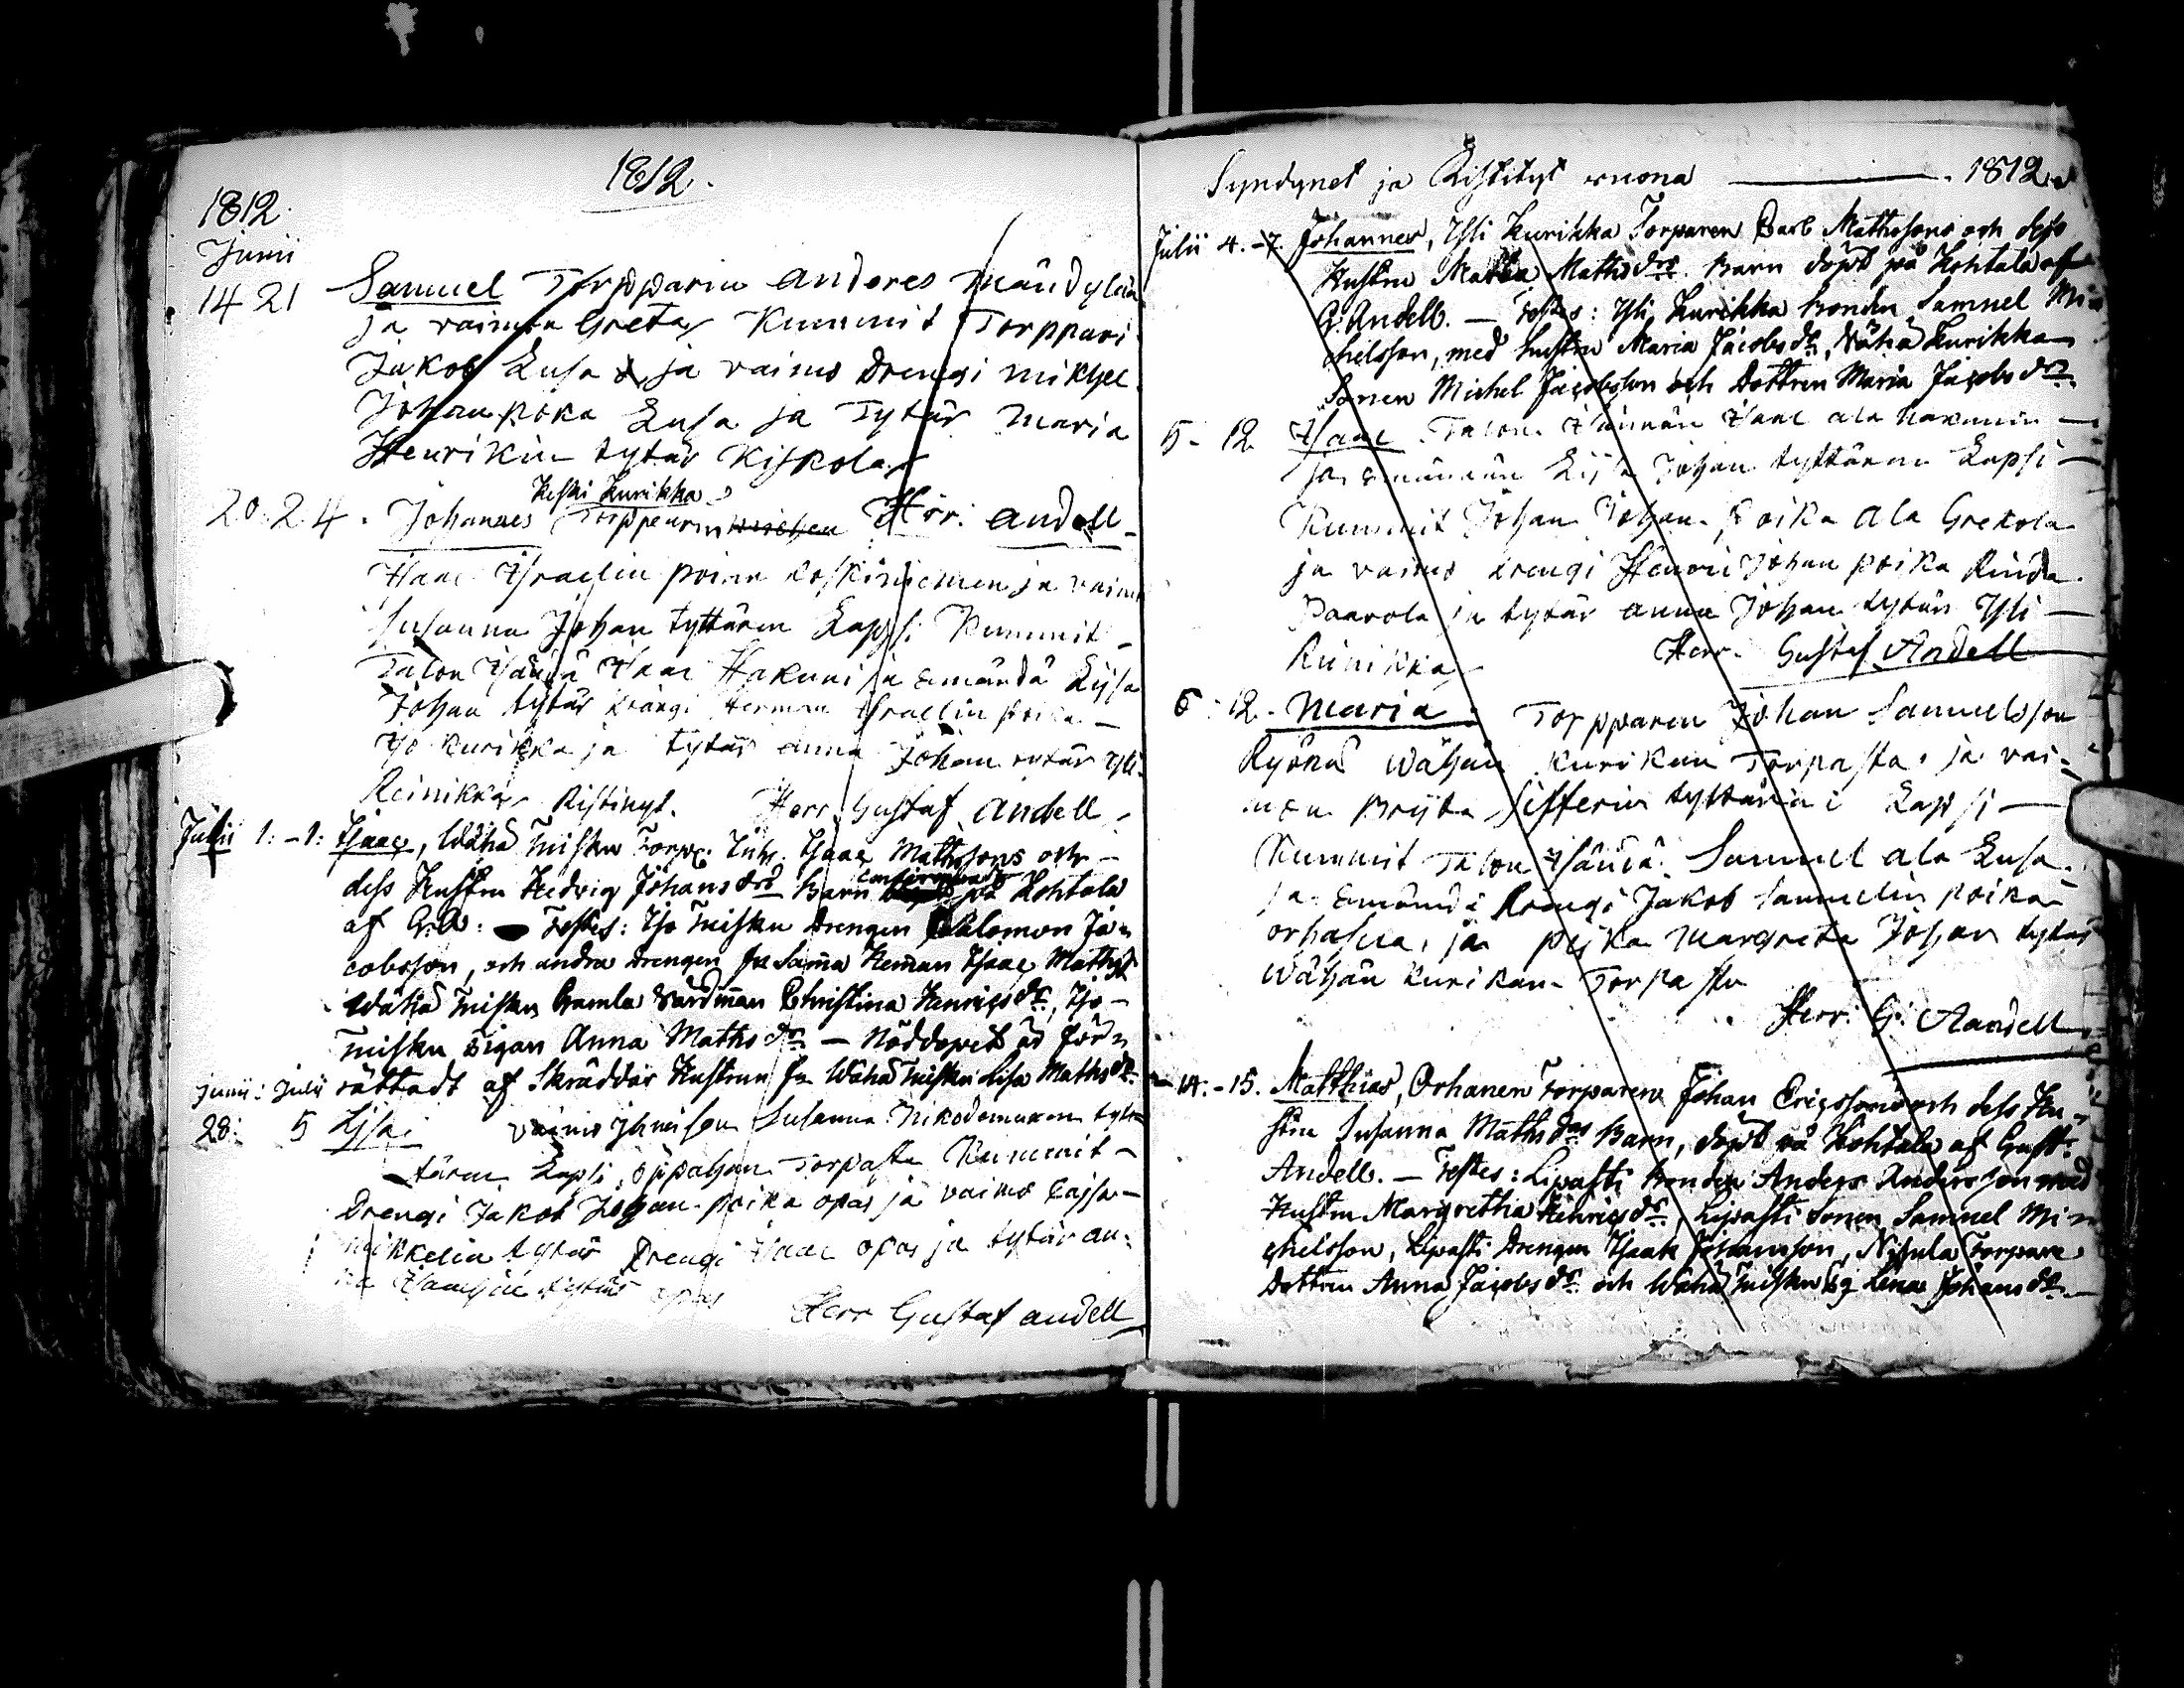 1812.
1812.
Junii
14 21 Samuel Torpparin anderes Mändylän
ja vaimon Greta Kummit Torppari
Jakob Lusa ja vaimo Drengi mikhel
Johan poika Lusa ja Tytär Maria
Henrikin tytär Kiskola
Keski Kurikka
20. 24. Johannes Herr: andell
Isaac Israelin poian Koskiniemen ja vaimo
Susanna Johan tyttären Lapsi Kummit
Talon Isändä Isaac Hakuni ja Emändä Lijsa
Johan tytär Drängi Herman Israelin poika
Iso Kurikka ja tytär anna Johan tytär Yli
Reinikka Ristinyt. Herr Gustaf andell
Julii 1: -1: Isaac, Wähä Misku Torp: Inh: Isaac Mathssons och
dess Hustru Hedvig Johans drs Barn confirmeradt på Kohtala
af G. A: Testes: Iso Misku Drengen Salomon Ja=
cobsson, och andra Drengen fr samma Heman Isaac Maths
Wähä Miskus Gamla Värdinnan Christina Henrics dr, Iso
Miskus Pigan Anna Maths dr — Nöddopet är för=
rättadt af Skräddar Hustrun fr Wähä Miskus Lisa Maths dr
Junii: Julii
28: 5 Lisa vaimo ihmisen Susanna Nikodemuxen tyt
tären Lapsi Torpasta Kummit
Drengi Jakob Johan poika opas ja vaimo Cajsa
Mikkelin tytär Drengi Isaac opas ja tytär an=
na tytär opas
Herr Gustaf andell
Syndynet ja Ristityt wuona 1812
Julii 4. -7. Johannes, Yli Kurikka Torparen Mathssons och dess
Hustru Maria Maths drs Barn döpt på Kohtala af
G. Andell. — Testes: Yli Kurikka Bonden Samuel Mi
chelsson, med hustru Maria Jacobs dr, Wähä Kurikka
Sonen Michel Jacobsson och Dottren Maria Jacobs dr
5 - 12 Isaac Talon Isännän Isaac ala Hakunin
ja Emännän Lijsa Johan tyttären Lapsi
Kummit Johan Johan Poika Ala Grekola
ja vaimo Drengi Henri Johan poika Rinda
Paavola ja tytär anna Johan tytär Yli
Reinikka Herr. Gustaf Andell
6 : 12. Maria Torpparen Johan Samuelsson
Ryönä Wähän Kurikan Torpasta ja vai
mon Brijta Sifferin tyttären Lapsi
Kummit Talon Isändä Samuel ala Lusa
ja Emändä Rengi Jakob Samuelin poika
orhasua, ja pijka Margreta Johan tytär
Wähän Kurikan Torpasta
Herr: G: Aandell
14. - 15. Matthias, Orhanen Torparen Johan Ericssons och dess Hu=
stru Susanna Maths drs Barn, döpt på Kohtala af Gust:
Andell. — Testes: Lipasti Bonden Anders Andersson med
Hustru Margretha Henrics dr, Lipasti Sonen Samuel Mi=
chelsson, Lipasti Drengen Isaac Johansson, Nisula Torpare
Dottren Anna Jacobs dr och Wähä Miskus Pig Lena Johans dr